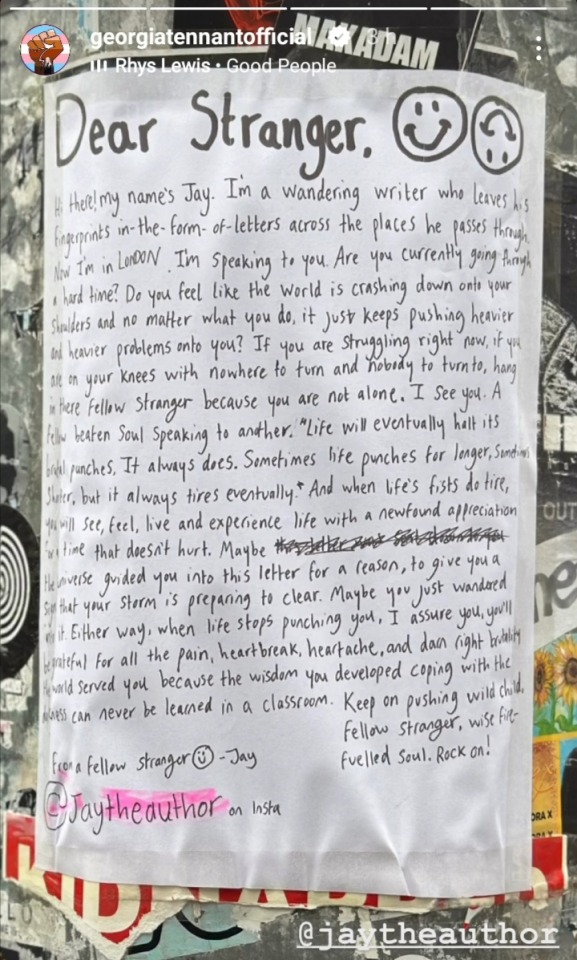 georgiatennantofficial 3 h
Rhys Lewis • Good People
MAKADAM
Dear Stranger,
Hi there! my name's Jay. I'm a wandering writer who leaves his
fingerprints in-the-form-of-letters across the places he passes through.
Now I'm in LONDON. I'm speaking to you. Are you currently going through
a hard time? Do you feel like the world is crashing down onto your
shoulders and no matter what you do, it just keeps pushing heavier
and heavier problems onto you? If you are struggling right now, if you
are on your knees with nowhere to turn and nobody to turn to, hang
in there fellow stranger because you are not alone. I see you. A
fellow beaten soul speaking to another. "Life will eventually halt its
brutal punches, It always does. Sometimes life punches for longer, sometimes
shorter, but it always tires eventually." And when life's fists do tire,
you will see, feel, live and experience life with a newfound appreciation
for a time that doesn't hurt. Maybe
the universe guided you into this letter for a reason, to give you a
sign that your storm is preparing to clear. Maybe you just wandered
into it. Either way, when life stops punching you, I assure you, you'll
be grateful for all the pain, heartbreak, heartache, and darn right brutality
the world served you because the wisdom you developed coping with the
madness can never be learned in a classroom. Keep on pushing wild child,
fellow stranger, wise fire-
fuelled soul. Rock on!
From a fellow stranger -Jay
@Jaytheauthor on Insta
OUT
ORA X
@jaytheauthor